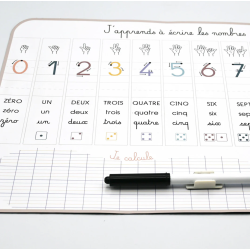 J'apprends à écrire les nombres
0 1 2 3 4 5 6 7
ZÉRO UN DEUX TROIS QUATRE CINQ SIX SEPT
zéro un deux trois quatre cinq six
zéro un deux trois quatre cinq six
Je calcule